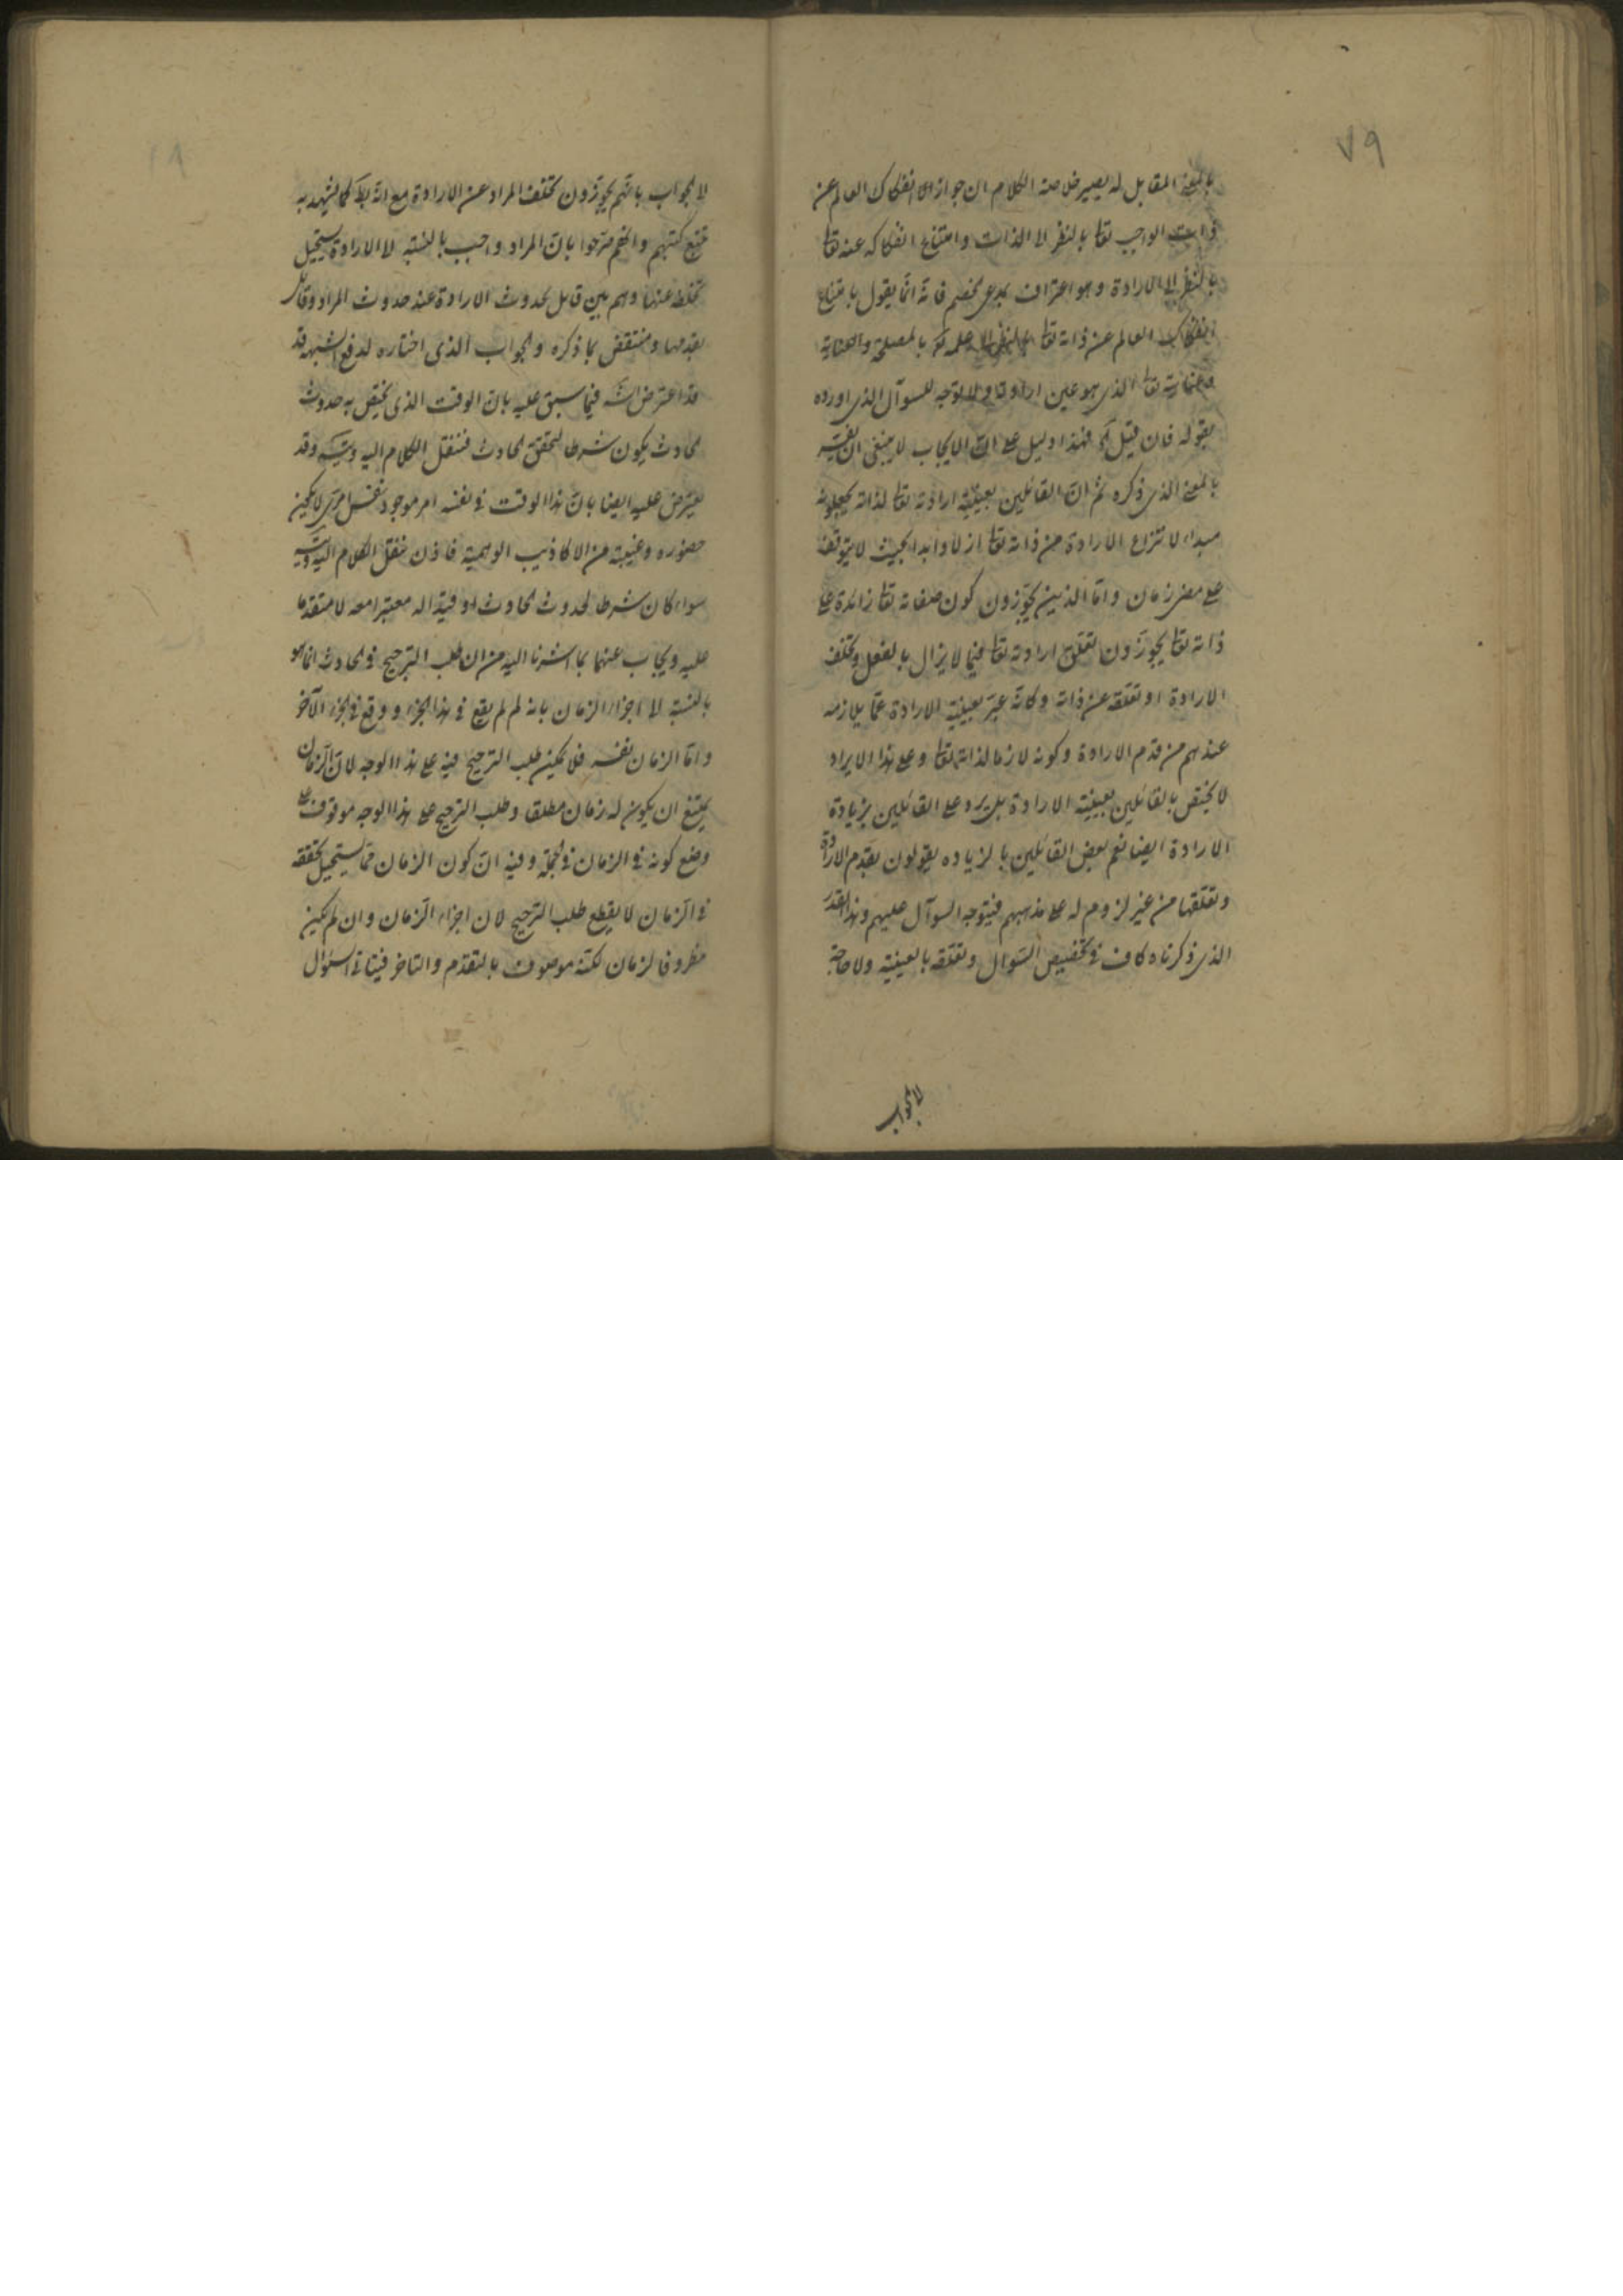 ٧٩
بالمعنى المقابل له يصير خلاصة الكلام ان جواز الانفكاك العالم عن
ذات الواجب تعا بالنظر الى الذات وامتناع انفكاكه عنه تعا
بالنظر الى الارادة وهو اعتراف بمدعى الخصم فانه انما يقول بامتناع
انفكاك العالم عن ذاته تعا بالنظر الى علمه تع بالمصلحة والعناية
تعا الذى هو عين ارادته ولا توجه للسوآل الذى اورده
بقوله فان قيل الخ فهذا دليل على انّ الايجاب لا ينبغى ان يفسّر
بالمعنى الذى ذكره ثم انّ القائلين بعينيّة ارادته تعا لذاته يجعلونه
مبداء لانتزاع الارادة من ذاته تعا ازلا وابدا بحيث لا يتوقف
على مضى زمان وامّا الذين يجوّزون كون صفاته تعا زائدة على
ذاته تعا يجوّزون تعلق ارادته تعا فيما لا يزال بالفعل وتخلف
الارادة او تعلقه عن ذاته وكانّه عبّر بعينية الارادة عمّا يلازمه
عندهم من قدم الارادة وكونه لازما لذاته تعا وعلى هذا الايراد
لا يختص بالقائلين بعينية الارادة بل يرد على القائلين بزيادة
الارادة ايضا نعم بعض القائلين بالزياده يقولون بقدم الارادة
وتعلقها من غير لزوم له على مذهبهم فيتوجه السوآل عليهم وهذا القدر
الذى ذكرناه كاف فى تخصيص السّوال وتعلقه بالعينية ولا حاجة
لا لجواب
لا لجواب بانّهم يجوّزون تخلف المراد عن الارادة مع انّه بط كما يشهد به
تتبع كتبهم وانهم صرّحوا بانّ المراد واجب بالنسبة لا الارادة يستحيل
تخلفه عنها وهم بين قايل بحدوث الارادة عند حدوث المراد وقائل
بقدمها ومنتقض بما ذكره والجواب الذى اختاره لدفع الشبهه قد
قد اعترض الش فيما سبق عليه بانّ الوقت الذى يختص به حدوث
الحادث يكون شرطا لتحقق الحادث فننقل الكلام اليه ويتس وقد
يعترض عليه ايضا بانّ هذا الوقت فى نفسه امر موجود لا يمكن
حضوره وغيبته من الاكاذيب الوهمية فاذن ننقل الكلام اليه ويتس
سواء كان شرطا لحدوث الحادث او قيدا له معتبرا معه لا متقدما
عليه ويجاب عنهما بما اشرنا اليه من ان طلب الترجيح فى الحادث انما هو
بالنسبة الى اجزاء الزمان بانه لم لم يقع فى هذا الجزء ووقع فى الجزء الآخر
وامّا الزمان نفسه فلا يمكن طلب الترجيح فيه على هذا الوجه لانّ الزمان
يمتنع ان يكون له زمان مطلقا وطلب الترجيح على هذا الوجه موقوف على
وضع كونه فى الزمان فى الجملة وفيه انّ كون الزمان ممّا يستحيل تحققه
فى الزمان لا يقطع طلب الترجيح لان اجزاء الزمان وان لم يكن
مظروفا لزمان لكنّه موصوف بالتقدّم والتاخر فيتاتى السّؤال